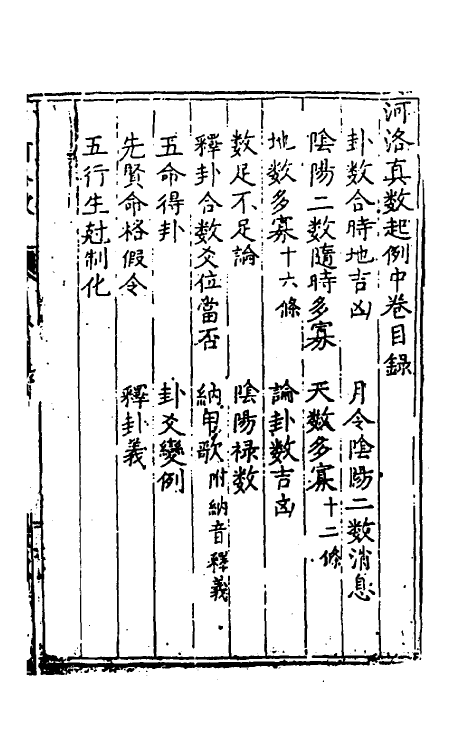 河洛真数起例中卷目錄
卦数合時地吉凶　月令陰陽二数消息
陰陽二数隨時多寡　天数多寡十二條
地数多寡十六條　論卦数吉凶
数足不足論　陰陽禄数
釋卦合数爻位當否　納甲歌附納音釋義
五命得卦　卦爻變例
先賢命格假令　釋卦義
五行生尅制化